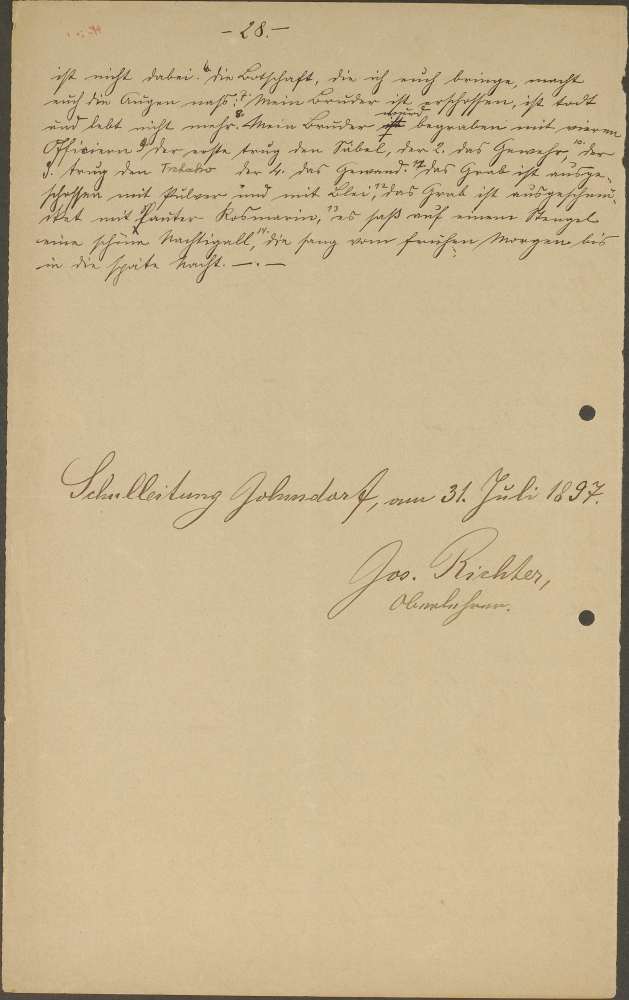 - 28. -
ist nicht dabei. 6. die Botschaft, die ich euch bringe, macht
euch die Augen naß: 7. Mein Bruder ist erschossen, ist todt
und lebt nicht mehr. 8. Mein Bruder wird begraben mit vieren
Offiziern 9. der erste trug den Säbel, der 2. das Gewehr, 10. der
3. trug den der 4. das Gewand. 11. das Grab ist ausge-
schossen mit Pulver und mit Blei, 12. das Grab ist ausgeschmü-
cket mit lauter Rosmarin, 13. es saß auf einem Stengel
eine schöne Nachtigall, 14. die sang vom frühen Morgen bis
in die späte Nacht. — . —
Schulleitung Johnsdorf, am 31. Juli 1897.
Jos. Richter,
Oberlehrer.